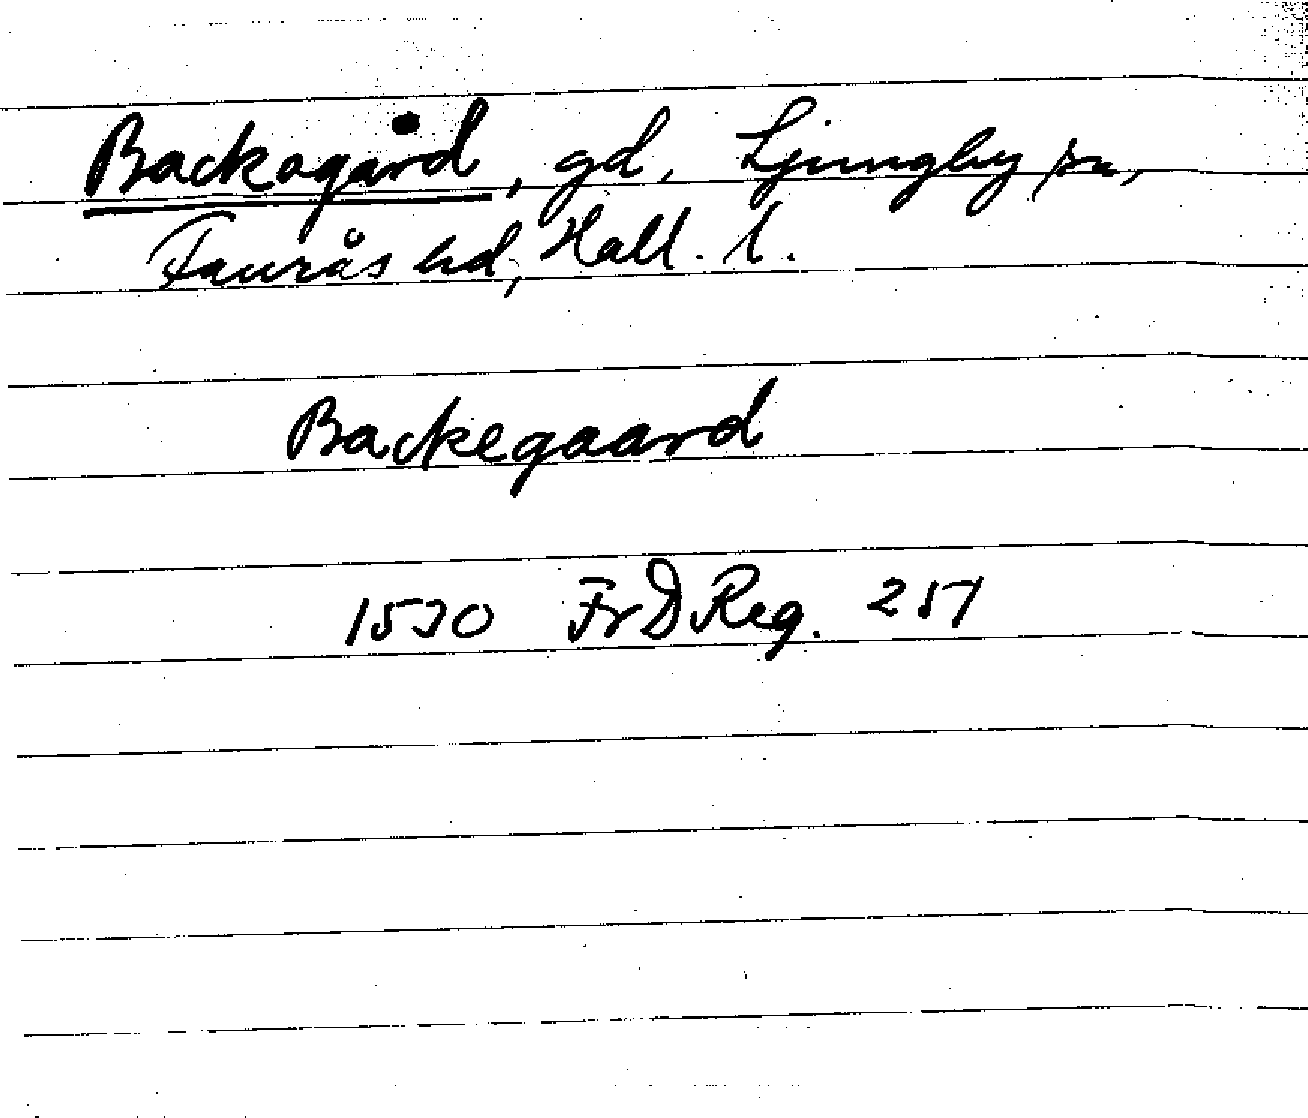 Backagård, gd, Ljungby sn,
Faurås hd, Hall. l.
Backegaard
1530 FrDReg. 257